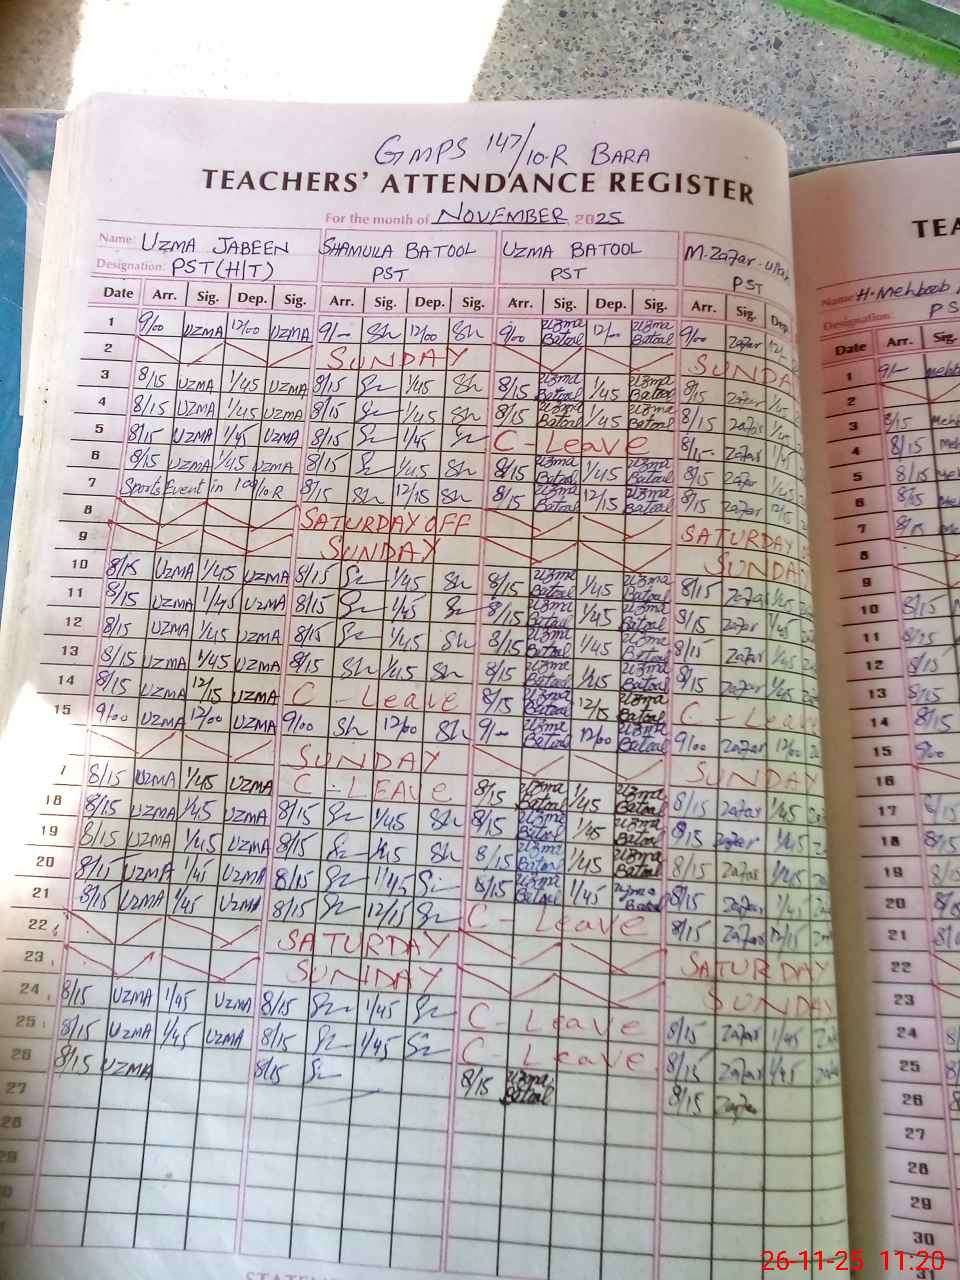 GMPS 147/10.R BARA
TEACHERS' ATTENDANCE REGISTER
For the month of NOVEMBER 2025
Name: UZMA JABEEN SHAMUILA BATOOL UZMA BATOOL M. Zafar
Designation: PST(H|T) PST PST PST
Date Arr. Sig. Dep. Sig. Arr. Sig. Dep. Sig. Arr. Sig. Dep. Sig. Arr. Sig. Dep
1 9/00 UZMA 12/00 UZMA 9/— Sh 12/00 Sh 9/00 Uzma Batool 12/00 Uzma Batool 9/00 Zafar
2 SUNDAY SUNDA
3 8/15 UZMA 1/45 UZMA 8/15 Sh 1/45 Sh 8/15 Uzma Batool 1/45 Uzma Batool 8/15 Zafar 1/45
4 8/15 UZMA 1/45 UZMA 8/15 Sh 1/45 Sh 8/15 Uzma Batool 1/45 Uzma Batool 8/15 Zafar 1/45
5 8/15 UZMA 1/45 UZMA 8/15 Sh 1/45 Sh C-Leave 8/15 Zafar 1/45
6 8/15 UZMA 1/45 UZMA 8/15 Sh 1/45 Sh 8/15 Uzma Batool 1/45 Uzma Batool 8/15 Zafar 1/45
7 Sports Event in 8/15 Sh 12/15 Sh 8/15 Uzma Batool 12/15 Uzma Batool 8/15 Zafar 12/15
8 SATURDAY OFF SATURDAY
9 SUNDAY SUNDA
10 8/15 UZMA 1/45 UZMA 8/15 Sh 1/45 Sh 8/15 Uzma Batool 1/45 Uzma Batool 8/15 Zafar 1/45
11 8/15 UZMA 1/45 UZMA 8/15 Sh 1/45 Sh 8/15 Uzma Batool 1/45 Uzma Batool 8/15 Zafar 1/45
12 8/15 UZMA 1/45 UZMA 8/15 Sh 1/45 Sh 8/15 Uzma Batool 1/45 Uzma Batool 8/15 Zafar 1/45
13 8/15 UZMA 1/45 UZMA 8/15 Sh 1/45 Sh 8/15 Uzma Batool 1/45 Uzma Batool 8/15 Zafar 1/45
14 8/15 UZMA 12/15 UZMA C-Leave 8/15 Uzma Batool 12/15 Uzma Batool C-Leav
15 9/00 UZMA 12/00 UZMA 9/00 Sh 12/00 Sh 9/— Uzma Batool 12/00 Uzma Batool 9/00 Zafar 12/00
SUNDAY SUNDAY
7 8/15 UZMA 1/45 UZMA C-LEAVE 8/15 Uzma Batool 1/45 Uzma Batool 8/15 Zafar 1/45
18 8/15 UZMA 1/45 UZMA 8/15 Sh 1/45 Sh 8/15 Uzma Batool 1/45 Uzma Batool 8/15 Zafar 1/45
19 8/15 UZMA 1/45 UZMA 8/15 Sh 1/45 Sh 8/15 Uzma Batool 1/45 Uzma Batool 8/15 Zafar 1/45
20 8/15 UZMA 1/45 UZMA 8/15 Sh 1/45 Sh 8/15 Uzma Batool 1/45 Uzma Batool 8/15 Zafar 1/45
21 8/15 UZMA 1/45 UZMA 8/15 Sh 12/15 Sh C-Leave 8/15 Zafar 12/15
22 SATURDAY SATURDAY
23 SUNDAY SUNDAY
24 8/15 UZMA 1/45 UZMA 8/15 Sh 1/45 Sh C-Leave 8/15 Zafar 1/45
25 8/15 UZMA 1/45 UZMA 8/15 Sh 1/45 Sh C-Leave 8/15 Zafar 1/45
26 8/15 UZMA 8/15 Sh 8/15 Uzma Batool 8/15 Zafar
27
28
29
30
TEA
Name: H. Mehboob
Designation: PS
Date Arr. Sig.
1 9/—
2
3 8/15
4 8/15
5 8/15
6 8/15
7 8/15
8
9
10 8/15
11 8/15
12 8/15
13 8/15
14 8/15
15 9/00
16
17 8/15
18 8/15
19
20
21
22
23
24
25
26
27
28
29
30
31
26-11-25 11:20